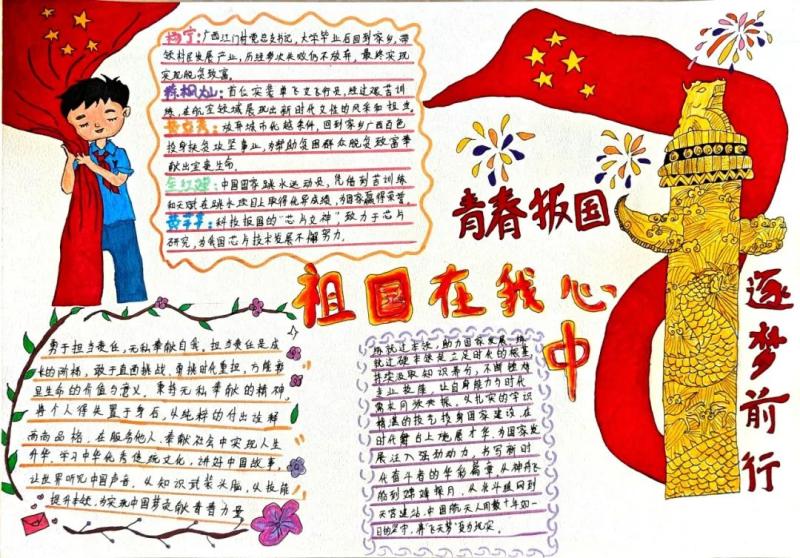 杨宁：广西江门村党总支书记，大学毕业后回到家乡，带
领村民发展产业，历经多次失败仍不放弃，最终实现
实现脱贫致富。
陈枫灿：首位实装单飞女飞行员，经过艰苦训
练，在航空领域展现出新时代女性的风采和担当
放弃城市优越条件，回到家乡广西百色
投身扶贫攻坚事业，为帮助贫困群众脱贫致富奉
献出宝贵生命。
全红婵：中国国家跳水运动员，凭借刻苦训练
和天赋在跳水项目上取得优异成绩，为国家赢得荣誉。
黄芊芊：科技报国的“芯片女神”致力于芯片
研究，为我国芯片技术发展不懈努力。
青春报国
祖国在我心
中
逐梦前行
勇于担当责任，无私奉献自我。担当责任是成
长的阶梯，敢于直面挑战、肩挑时代重担，方能彰
显生命的价值与意义。秉持无私奉献的精神，
将个人得失置于身后，以纯粹的付出诠释
高尚品格，在服务他人、奉献社会中实现人生
升华。学习中华优秀传统文化，讲好中国故事，
让世界听见中国声音。以知识武装头脑，以技能
提升本领，为实现中国梦贡献青春力量
练就过硬本领，助力国家发展。练
就过硬本领是立足时代的根基，
持续汲取知识养分，不断锤炼
专业技能，让自身能力与时代
需求同频共振。以扎实的学识
精湛的技艺投身国家建设，在
时代舞台上施展才华，为国家发
展注入强劲动力，书写新时
代奋斗者的华彩篇章。从神舟飞
船到嫦娥探月，从北斗组网到
天宫建站，中国航天人用数十年如一
日的坚守，将“飞天梦”变为现实。